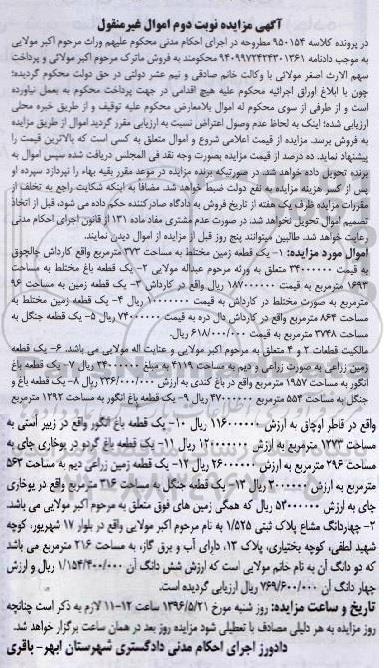 آگهی مزایده نوبت دوم اموال غیرمنقول
در پرونده کلاسه ۹۵۰۱۵۴ مطروحه در اجرای احکام مدنی محکوم علیهم وراث مرحوم اکبر مولایی
به موجب دادنامه ۹۴۰۹۹۷۲۴۲۴۳۰۱۳۶۱ محکومند به فروش ماترک مرحوم اکبر مولائی و پرداخت
سهم الارث اصغر مولائی با وکالت خانم صادقی و نیم عشر دولتی در حق دولت محکوم گردیده؛
چون با ابلاغ اوراق اجرائیه محکوم علیه هیچ اقدامی در جهت پرداخت محکوم به بعمل نیاورده
است و از طرفی از سوی محکوم له اموال بلامعارض محکوم علیه توقیف و از طریق خبره محلی
ارزیابی شده؛ اینک به لحاظ عدم وصول اعتراض نسبت به ارزیابی مقرر گردید اموال از طریق مزایده
به فروش برسد. مزایده از قیمت اعلامی شروع و اموال متعلق به کسی است که بالاترین قیمت را
پیشنهاد نماید. ده درصد از قیمت مزایده بصورت وجه نقد فی المجلس دریافت شده سپس اموال به
برنده تحویل داده خواهد شد. در صورتیکه برنده مزایده در موعد مقرر بقیه بهاء را نپردازد سپرده او
پس از کسر هزینه مزایده به نفع دولت ضبط خواهد شد. مضافا به اینکه شکایت راجع به تخلف از
مقررات مزایده ظرف یک هفته از تاریخ فروش به دادگاه صادرکننده حکم داده می شود، قبل از اتخاذ
تصمیم اموال تحویل نخواهد شد. در صورت عدم مشتری مفاد ماده ۱۳۱ از قانون اجرای احکام مدنی
رعایت خواهد شد. طالبین میتوانند پنج روز قبل از مزایده از اموال دیدن نمایند.
اموال مورد مزایده: ۱- یک قطعه زمین مختلط به مساحت ۳۷۳ مترمربع واقع کارداش چالچوق
به قیمت ۳۴۰۰۰۰۰۰ متعلق به ورثه مرحوم عبداله مولایی ۲- یک قطعه باغ مختلط به مساحت
۱۶۹۳ مترمربع به قیمت ۱۸۷۰۰۰۰۰۰ ریال واقع در کارداش ۳- یک قطعه زمین به مساحت ۹۶
مترمربع به صورت مختلط در کارداش به قیمت ۱۰۰۰۰۰۰۰ ریال ۴- یک قطعه زمین مختلط به
مساحت ۸۶۴ مترمربع واقع در کارداش دال دره به قیمت ۷۴۰۰۰۰۰۰ ریال ۵- یک قطعه جنگل به
مساحت ۳۷۴۸ مترمربع به قیمت ۶۱۸/۰۰۰/۰۰۰ ریال.
مالکیت قطعات ۲ و ۴ متعلق به مرحوم اکبر مولایی و عنایت اله مولایی می باشد. ۶- یک قطعه
زمین زراعی به صورت زراعی و دیم به مساحت ۴۱۱۹ به مبلغ ریال ۷- یک قطعه باغ
انگور به مساحت ۱۹۵۷ مترمربع واقع در باغ کندی به ارزش ۲۳۶/۰۰۰/۰۰۰ ریال ۸- یک قطعه باغ و
جنگل به مساحت ۵۵۴ مترمربع ۴۷۰۰۰۰۰۰ ریال ۹- یک قطعه باغ انگور به مساحت ۱۲۹۲ مترمربع
واقع در قاطر اوچاق به ارزش ۱۱۶۰۰۰۰۰۰ ریال ۱۰- یک قطعه باغ انگور واقع در زبیر آستی به
مساحت ۱۲۷۳ مترمربع به ارزش ۱۲۰۰۰۰۰۰۰ ریال ۱۱- یک قطعه باغ گردو در یوخاری چای به
مساحت ۲۹۶ مترمربع به ارزش ۲۶۰۰۰۰۰۰ ریال ۱۲- یک قطعه زمین زراعی دیم به مساحت ۵۶۳
مترمربع به ارزش ۲۰۰۰۰۰۰ ریال ۱۳- یک قطعه جنگل به مساحت ۳۱۶ مترمربع واقع در یوخاری
جای به ارزش ۵۳۰۰۰۰۰۰ ریال که همگی زمین های فوق متعلق به مرحوم اکبر مولایی می باشد.
۲- چهاردانگ مشاع پلاک ثبتی ۱/۵۲۵ به نام مرحوم اکبر مولایی واقع در بلوار ۱۷ شهریور، کوچه
شهید لطفی، کوچه بختیاری، پلاک ۱۲، دارای آب و برق گاز، به مساحت ۲۱۶ مترمربع می باشد
که دو دانگ آن به نام خانم مولایی است که ارزش شش دانگ آن ۱/۱۵۴/۴۰۰/۰۰۰ ریال و ارزش
چهار دانگ آن ۷۶۹/۶۰۰/۰۰۰ ریال ارزیابی گردیده است.
تاریخ و ساعت مزایده: روز شنبه مورخ ۱۳۹۶/۵/۲۱ ساعت ۱۲-۱۱ لازم به ذکر است چنانچه
روز مزایده به هر دلیلی مصادف با تعطیلی شود مزایده روز بعد در همان ساعت برگزار خواهد شد.
دادورز اجرای احکام مدنی دادگستری شهرستان ابهر- باقری